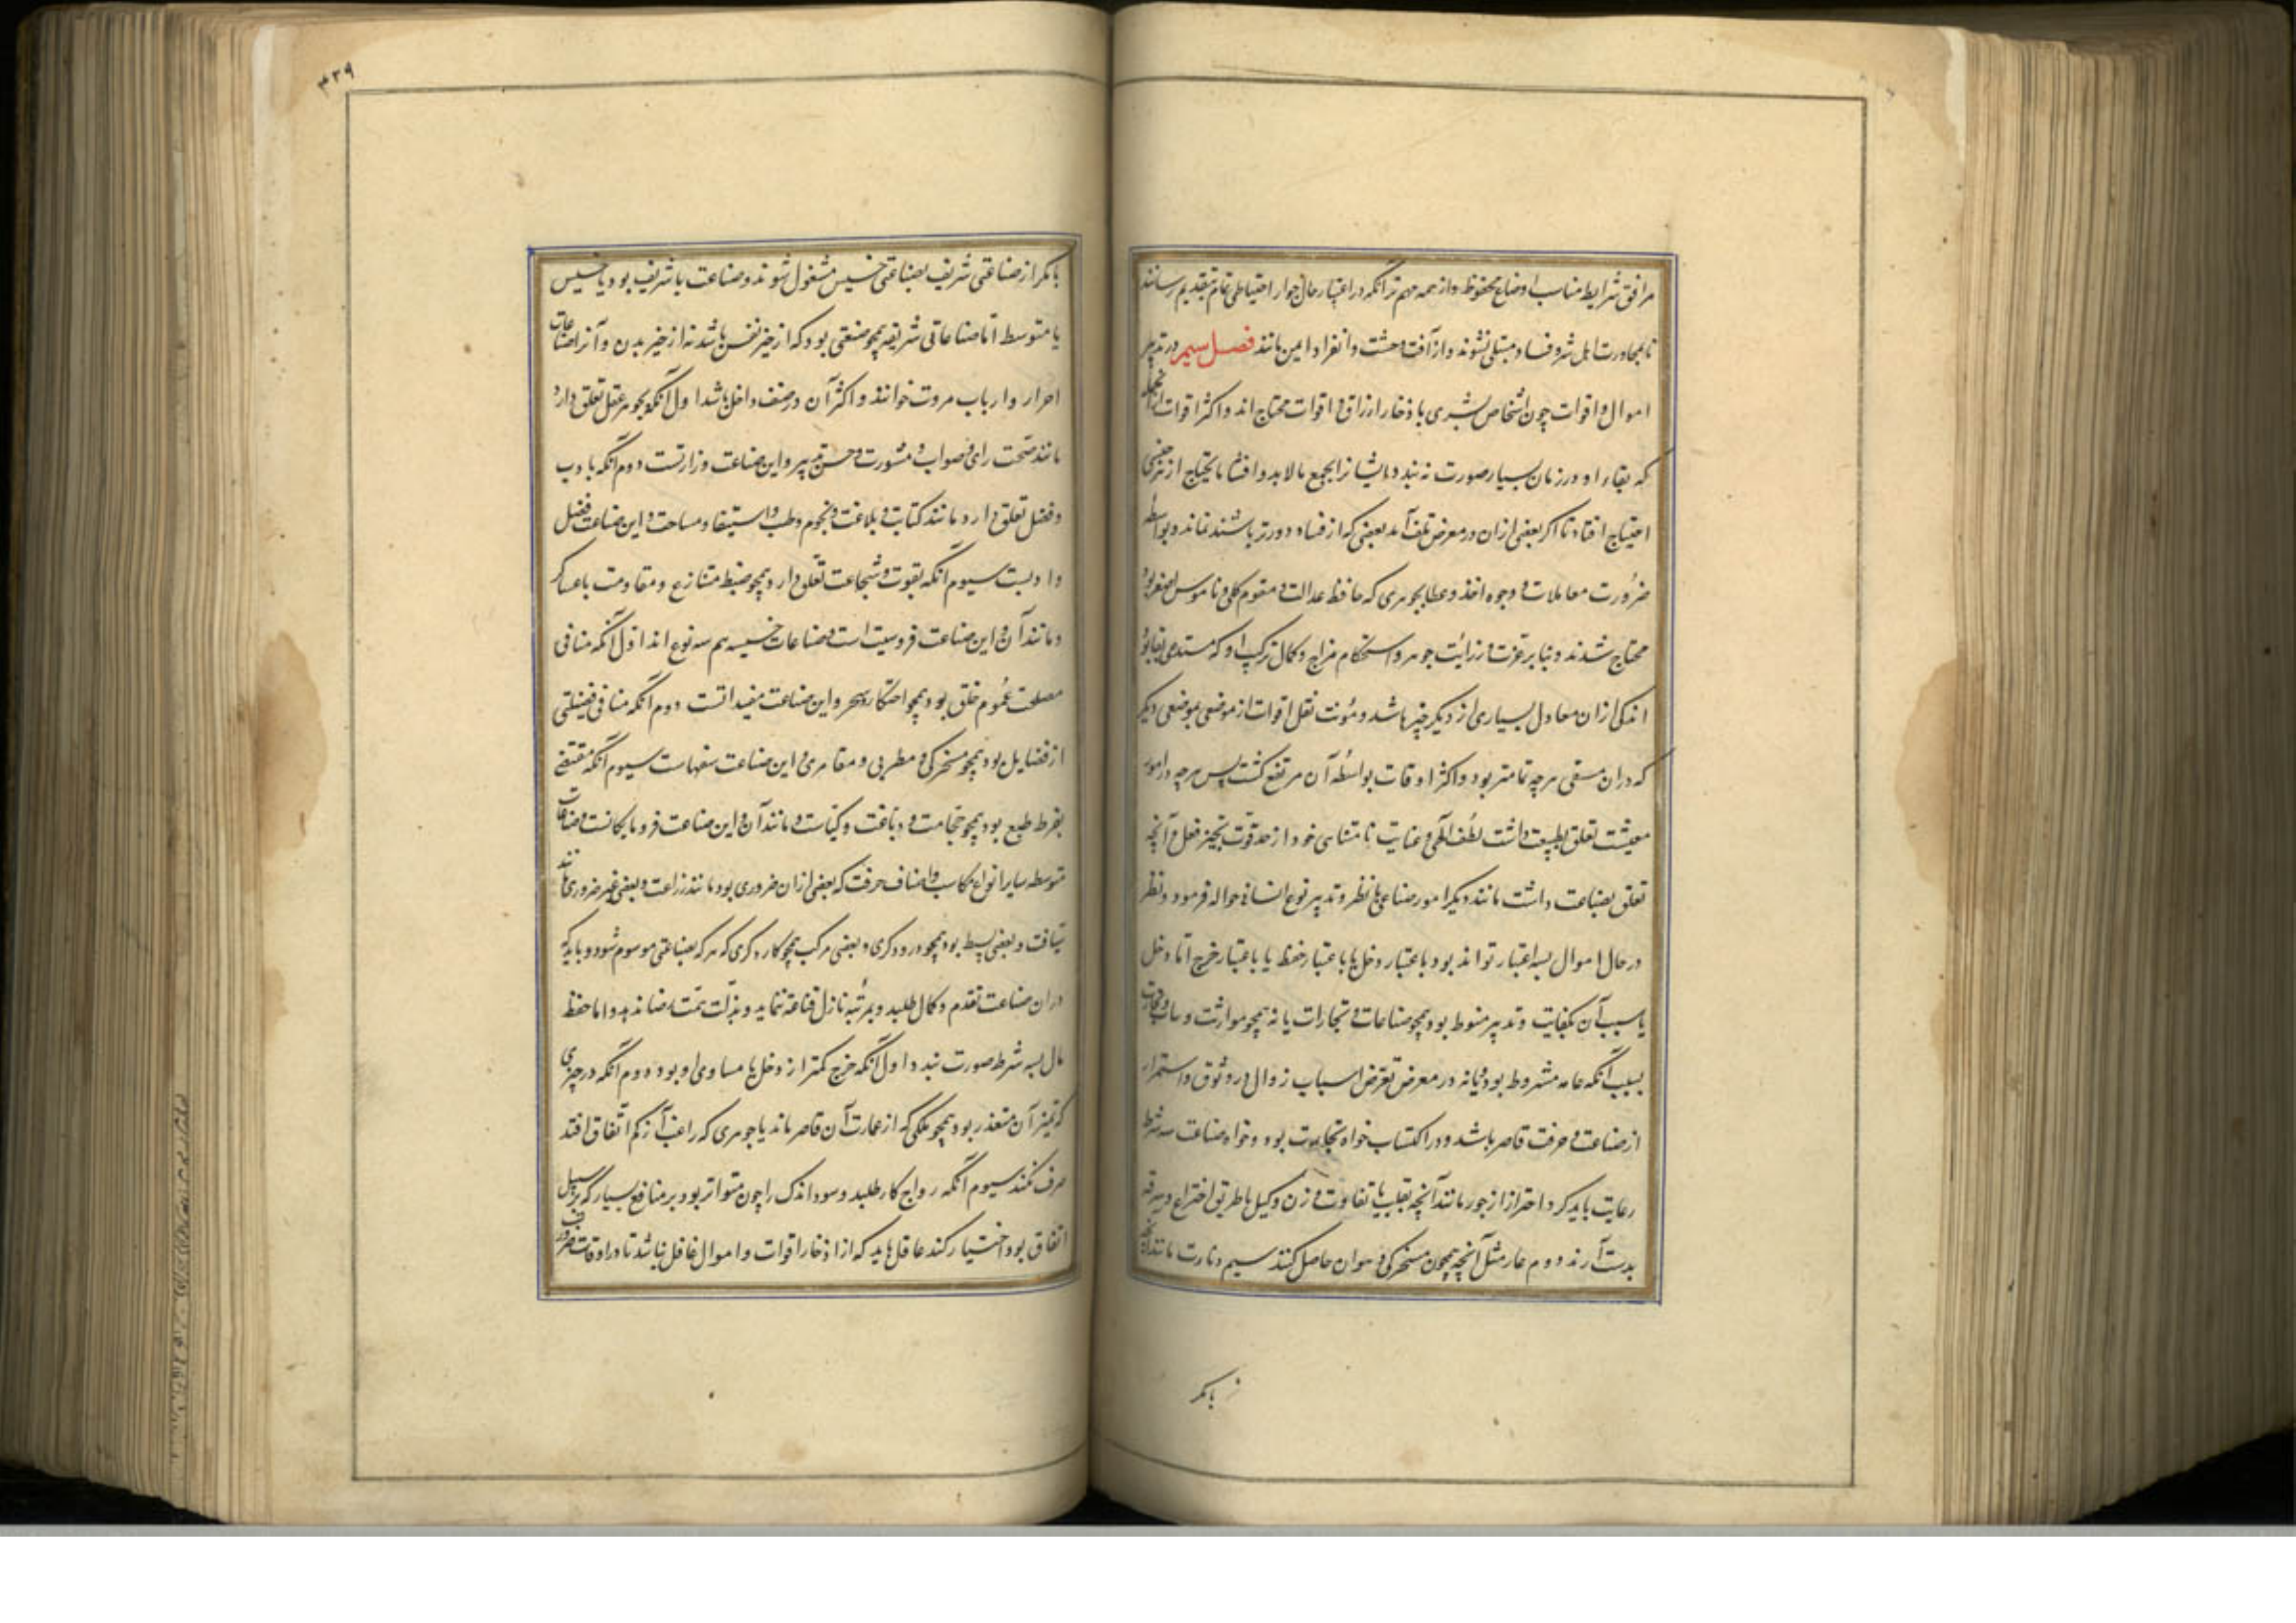 مرافق شرایط مناسب اوضاع محفوظ و از همه مهم تر آنکه در اعتبار حال جوار احتیاطی تمام بتقدیم رسانند
تا بمجاورت اهل شر و فساد مبتلی نشوند و از آفت وحشت و انفراد ایمن مانند فصل سیم در تدبیر
اموال و اقوات چون اشخاص بشری باذخار ارزاق و اقوات محتاج اند و اکثر اقوات
که بقاء او در زمان بسیار صورت نه بندد ایشانرا بجمع مالابد و اقتنا مایحتاج از هر جنسی
احتیاج افتاد تا اگر بعضی ازان در معرض تلف آمد بعضی که از فساد دورتر باشند نماند و بواسطه
ضرورت معاملات و وجوه اخذ و عطا بجوهری که حافظ عدالت و مقوم کلی و ناموس اصغر بود
محتاج شدند و بنابر عزت و رزانت جوهر و استحکام مزاج و کمال ترکیب او که مستدعی بقا بود
اندکی ازان معادل بسیاری از دیگر چیز باشد و مؤنت نقل اقوات از موضعی بموضعی دیگر
که دران مشقتی هرچه تمامتر بود و اکثر اوقات بواسطه آن مرتفع کشت پس هرچه در امور
معیشت تعلق بطبیعت داشت لطف الهی و عنایت نامتناهی خود از حد قوت بحیز فعل و آنچه
تعلق بصناعت داشت مانند دیگر امور صناعی با نظر و تدبیر نوع انسانی حواله فرمود و نظر
در حال اموال بسه اعتبار تواند بود باعتبار دخل یا باعتبار حفظ یا باعتبار خرج اما دخل
یا سبب آن بکفایت و تدبیر منوط بود همچو صناعات و تجارات یا نه همچو مواریث و
بسبب آنکه عامه مشروط بود و مایه در معرض تعرض اسباب زوال در وثوق و استمرار
از صناعت و حرفت قاصر باشد و در اکتساب خواه تجارت بود و خواه صناعت سه شرط
رعایت باید کرد احتراز از جور مانند آنچه بتغلب یا تفاوت وزن و کیل یا طریق اختراع و سرقه
بدست آرند دوم عار مثل آنچه همچون مسخرکی و هوان حاصل کنند سیم دنائت مانند آنچه
بامکر
۴۳۹
بامکر از صناعتی شریف بصناعتی خسیس مشغول شوند و صناعت یا شریف بود یا خسیس
یا متوسط اما صناعاتی شریفه همچو صنفی بود که از حیز نفس باشد نه از حیز بدن و آنرا صناعات
احرار و ارباب مروت خوانند و اکثر آن در سه صنف داخل باشد اول آنکه بجوهر عقل تعلق دارد
مانند صحت رای و صواب و مشورت و حسن تدبیر و این صناعت وزارتست دوم آنکه بادب
و فضل تعلق دارد مانند کتابت و بلاغت و نجوم و طب و استیفا و مساحت و این صناعت فضل
و ادبست سیوم آنکه بقوت و شجاعت تعلق دارد همچو ضبط منازع و مقاومت با عساکر
و مانند آن و این صناعت فروسیت است و صناعات خسیسه هم سه نوع اند اول آنکه منافی
مصلحت عموم خلق بود همچو احتکار و سحر و این صناعت مفسدانست دوم آنکه منافی فضیلتی
از فضایل بود همچو مسخرکی و مطربی و مقامری و این صناعت سفهاست سیوم آنکه مقتضی
بفرط طبع بود همچو حجامت و دباغت و کناست و مانند آن و این صناعت فرومایگانست و صناعات
متوسطه سایر انواع مکاسب و اصناف حرفت که بعضی ازان ضروری بود مانند زراعت و بعضی غیر ضروری مانند
و بعضی بسیط بود همچو درودکری و بعضی مرکب همچو کاردکری که هرکه بصناعتی موسوم شود و باید که
دران صناعت تقدم و کمال طلبد و بمرتبه نازل قناعت ننماید و بذلت همت رضا ندهد و اما حفظ
مال بسه شرط صورت بندد اول آنکه خرج کمتر از دخل یا مساوی او بود دوم آنکه در چیزی
که تمیز آن متعذر بود همچو ملکی که از عمارت آن قاصر ماند یا جوهری که راغب آن کم اتفاق افتد
صرف نکنند سیوم آنکه رواج کار طلبد و سود اندک را چون متواتر بود بر منافع بسیار که بر سبیل
اتفاق بود اختیار کند عاقل باید که از اذخار اقوات و اموال غافل نباشد تا در اوقات ضرورت